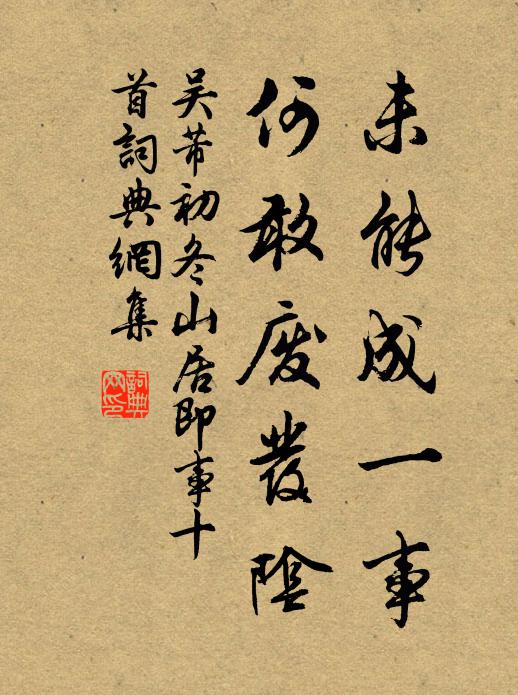 未能成一事
何敢废發陰
吴芾初冬山居即事十
首詞典網集
詞典
网印